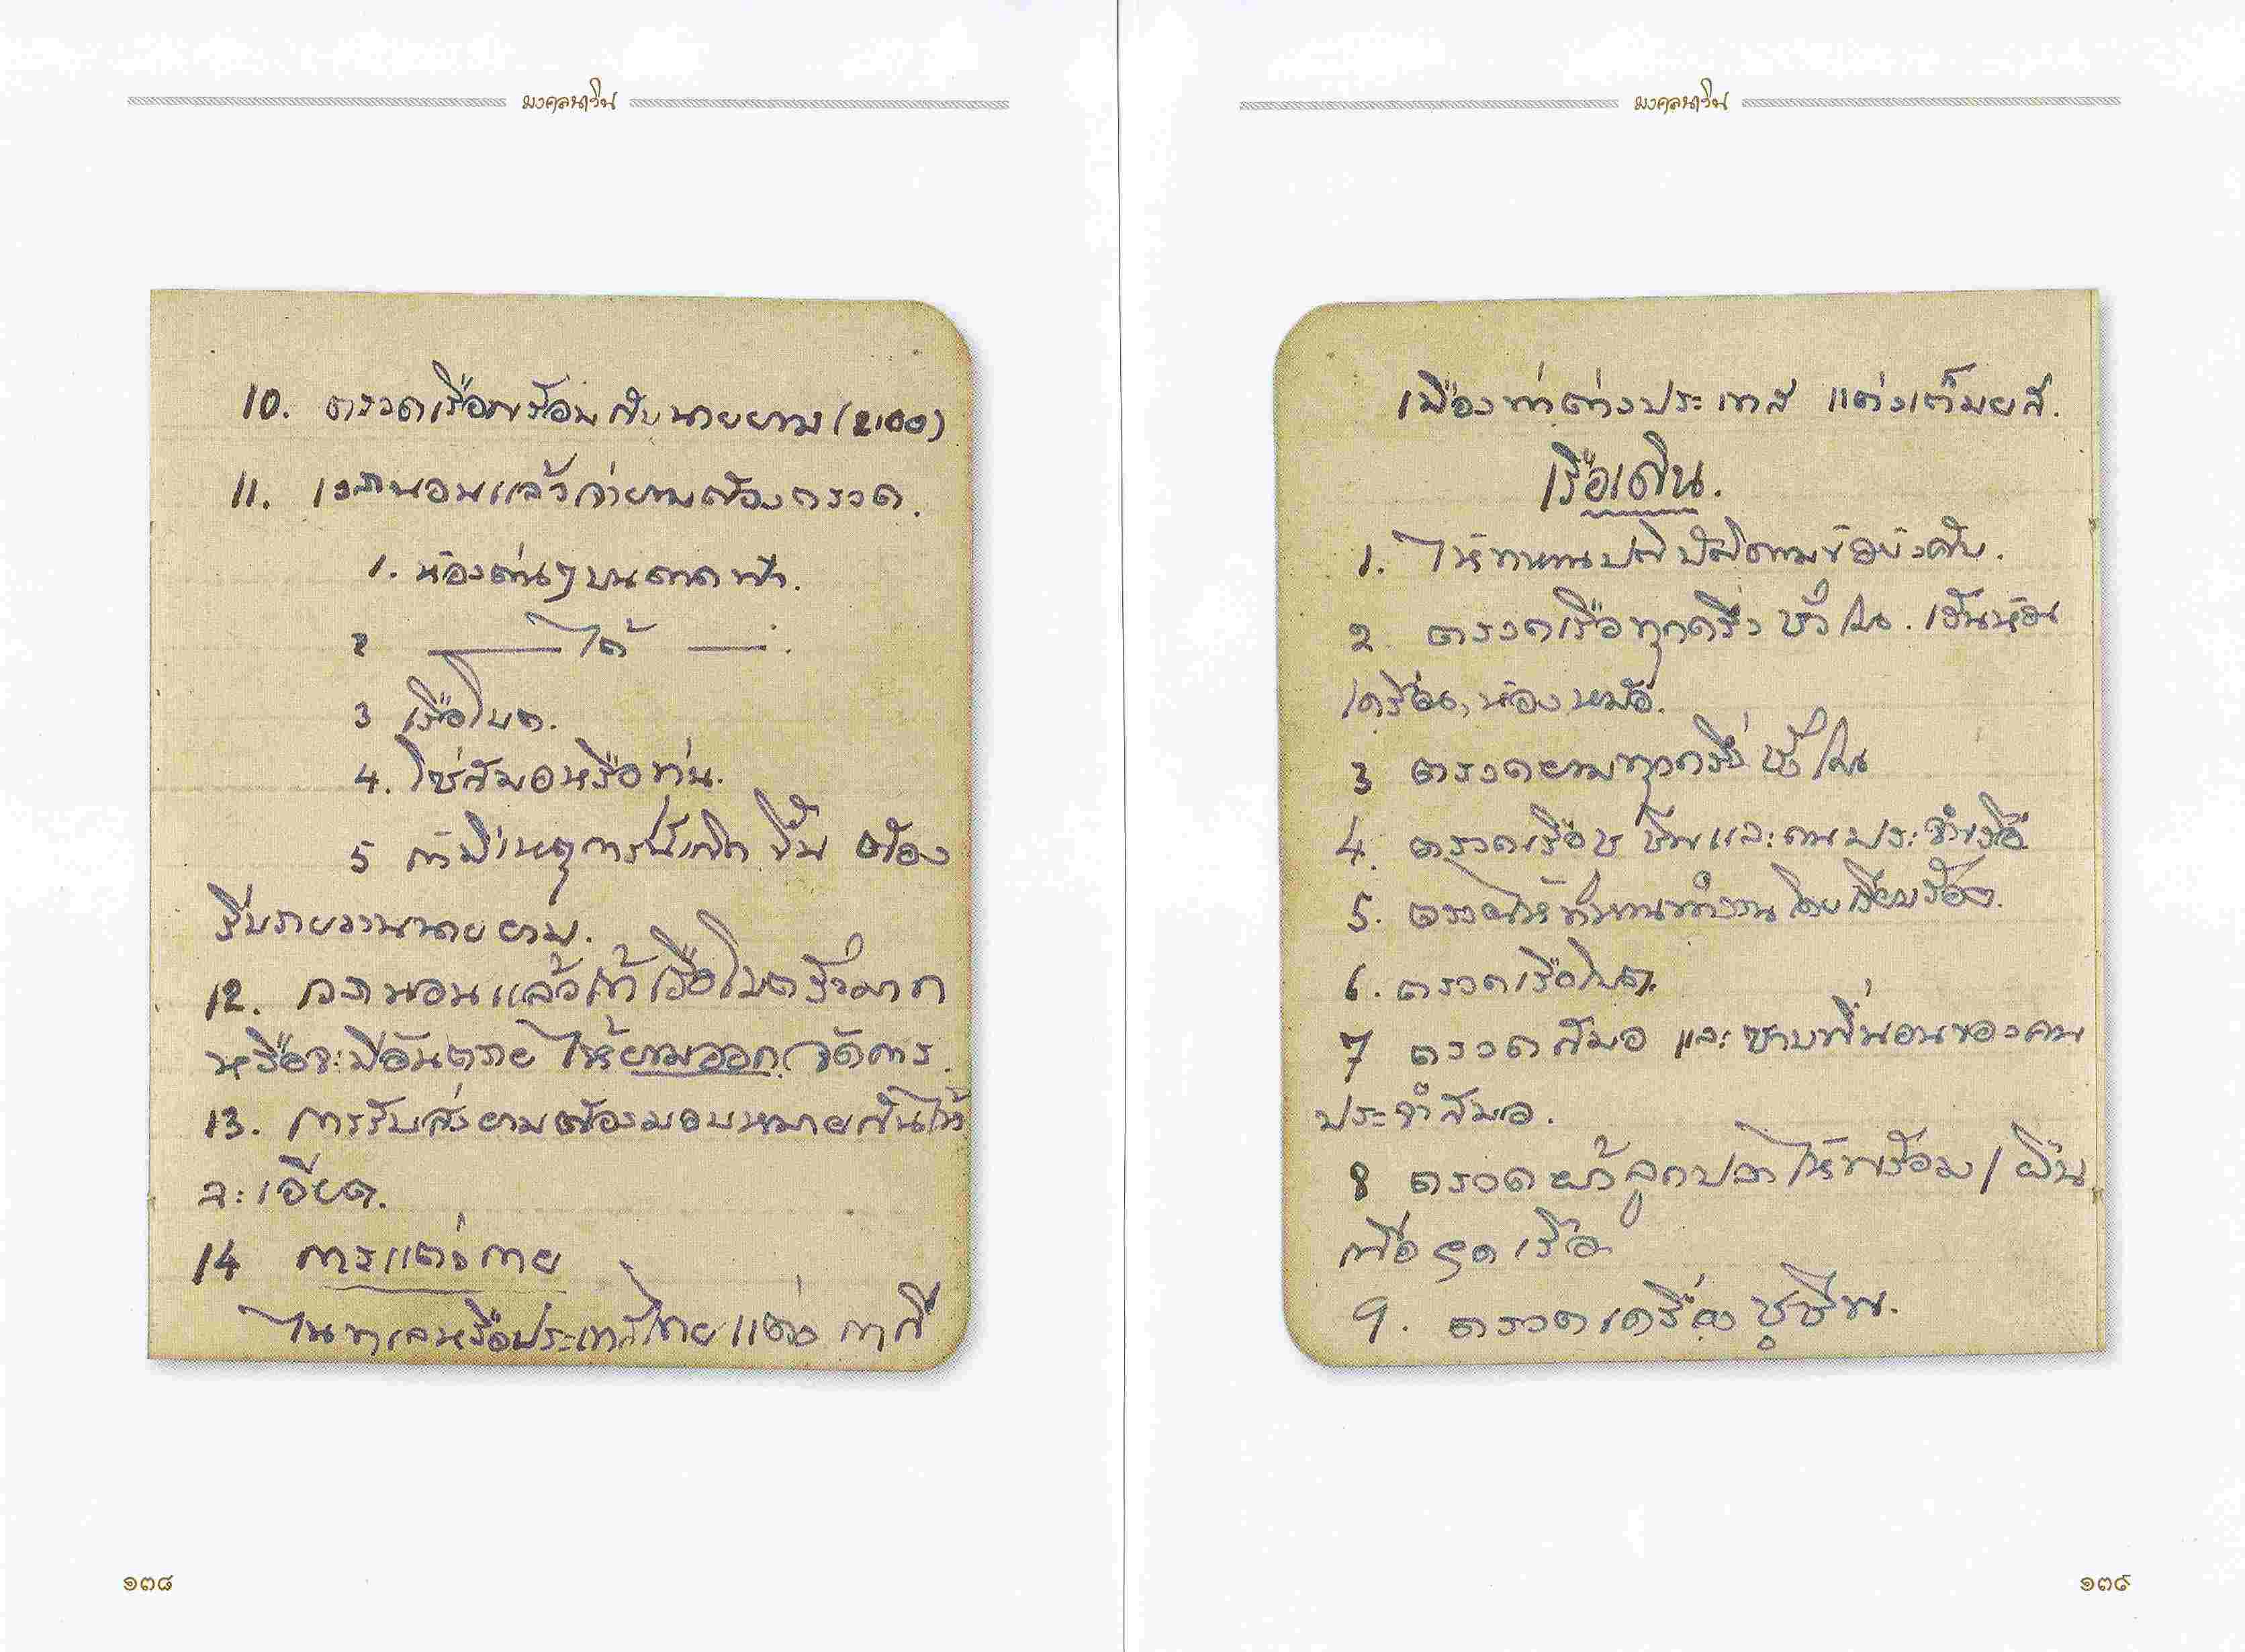 มงคลนาวิน
10. ตรวดเรือพร้อมกับนายยาม (2100)
11. เวลานอนแล้วจ่ายามต้องตรวด.
1. ห้องต่นๆบนดาดฟ้า.
2 —— ใต้ ——.
3 เรือโบต.
4. โซ่สมอหรือทุ่น.
5 ถ้ามีเหตุการณ์เกิดขึ้น ต้อง
รีบรายงานนายยาม.
12. เวลานอนแล้วถ้าเรือโบตรั่วมาก
หรือจะมีอันตราย ให้ยามออกจัดการ.
13. การรับส่งยามต้องมอบหมายกันให้
ละเอียด.
14 การแต่งกาย
ในทเลหรือประเทศไทยแต่ง กาสี
๑๓๘
มงคลนาวิน
เมืองท่าต่างประเทส แต่งเต็มยส.
เรือเดิน.
1. ให้ทหานปติบัติตามข้อบังคับ.
2 ตรวดเรือทุกครึ่ง ชั่วโมง. เว้นห้อง
เครื่อง, ห้องหม้อ.
3 ตรวดยามทุกครึ่ง ชั่วโมง
4. ตรวดเรือช ชีพและคนประจำเรือ
5. ตรวดให้ทหานทำงานโดยเรียบร้อย.
6. ตรวดเรือโบต.
7 ตรวดสมอ และซาบที่นอนของคน
ประจำสมอ.
8 ตรวด ลูกปลาให้พร้อม
เพื่อ เรือ
9. ตรวดเครื่องชูชีพ.
๑๓๙